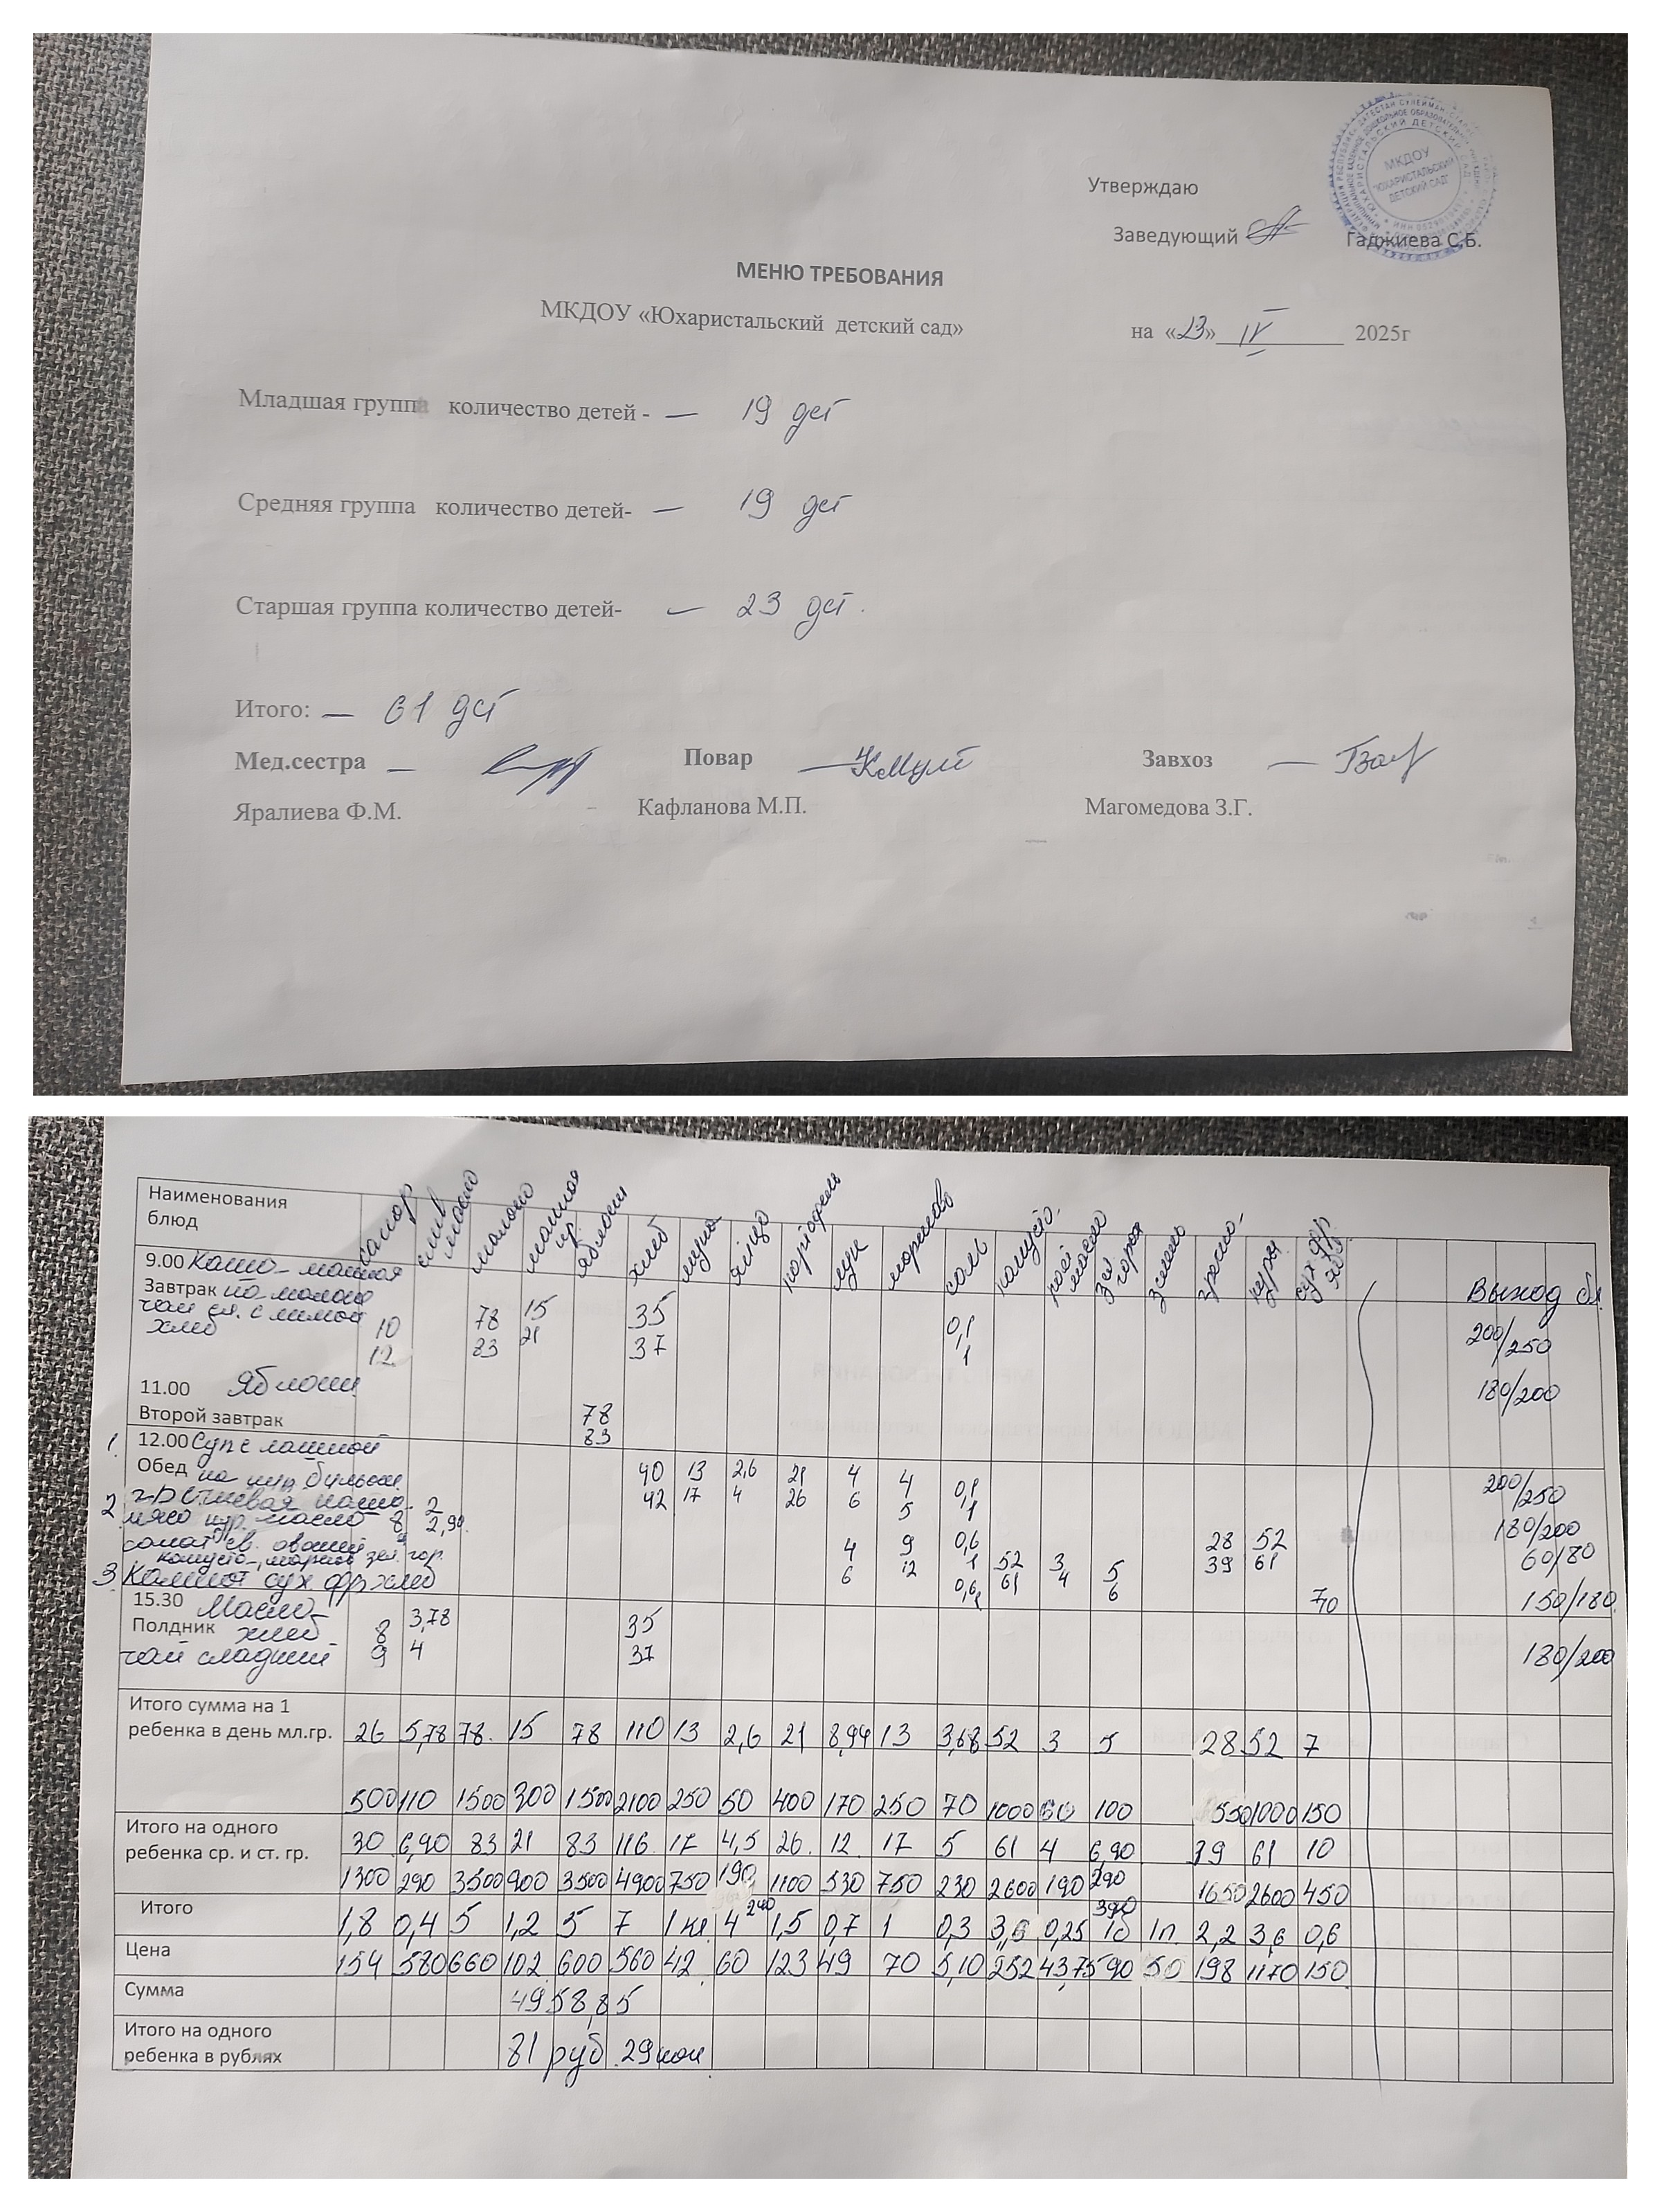 Утверждаю
МКДОУ
"ЮХАРИСТАЛЬСКИЙ
ДЕТСКИЙ САД"
Заведующий Гаджиева С.Б.
МЕНЮ ТРЕБОВАНИЯ
МКДОУ «Юхаристальский детский сад»
на «23» IV 2025г
Младшая группа количество детей - — 19 дет
Средняя группа количество детей- — 19 дет
Старшая группа количество детей- — 23 дет.
Итого: — 61 дет
Мед.сестра — Повар — Завхоз —
Яралиева Ф.М. Кафланова М.П. Магомедова З.Г.
Наименования блюд сахар слив масло молоко манная кр. яблоки хлеб мука яйцо картофель лук морковь соль капуста раст масло зел горох зелень гречка кура сух фр.
Выход бл.
9.00 Каша манная
Завтрак на молоке
чай сл. с лимон
хлеб
10 78 15 35 0,1 200/250
12 83 21 37 1
11.00 Яблоки 180/200
Второй завтрак 78
83
1. 12.00 Суп с лапшой
Обед на кур. бульон.
40 13 2,6 21 4 4 0,1 200/250
42 17 4 26 6 5 1
2. гречневая каша 2 180/200
мясо кур. масло 8 2,90 28 52
салат св. овощей 4 9 0,6 52 3 5 39 61 60/80
капуста, морков зел. гор. 6 12 1 61 4 6
3. Компот сух фр хлеб 0,6 70 150/180
15.30 Масло 3,78 35
Полдник хлеб 8 4 37
чай сладкий 9 180/200
Итого сумма на 1
ребенка в день мл.гр. 26 5,78 78 15 78 110 13 2,6 21 8,94 13 3,68 52 3 5 28 52 7
500 110 1500 300 1500 2100 250 50 400 170 250 70 1000 60 100 550 1000 150
Итого на одного
ребенка ср. и ст. гр. 30 6,90 83 21 83 116 17 4,5 26 12 17 5 61 4 6,90 39 61 10
1300 290 3500 900 3500 4900 750 190 1100 530 750 230 2600 190 290 1650 2600 450
240 390
Итого 1,8 0,4 5 1,2 5 7 1 кг 4 1,5 0,7 1 0,3 3,6 0,25 1б 1п. 2,2 3,6 0,6
Цена 154 580 660 102 600 560 42 60 123 49 70 5,10 252 43,75 90 50 198 1170 150
Сумма 4958,85
Итого на одного
ребенка в рублях 81 руб. 29 коп